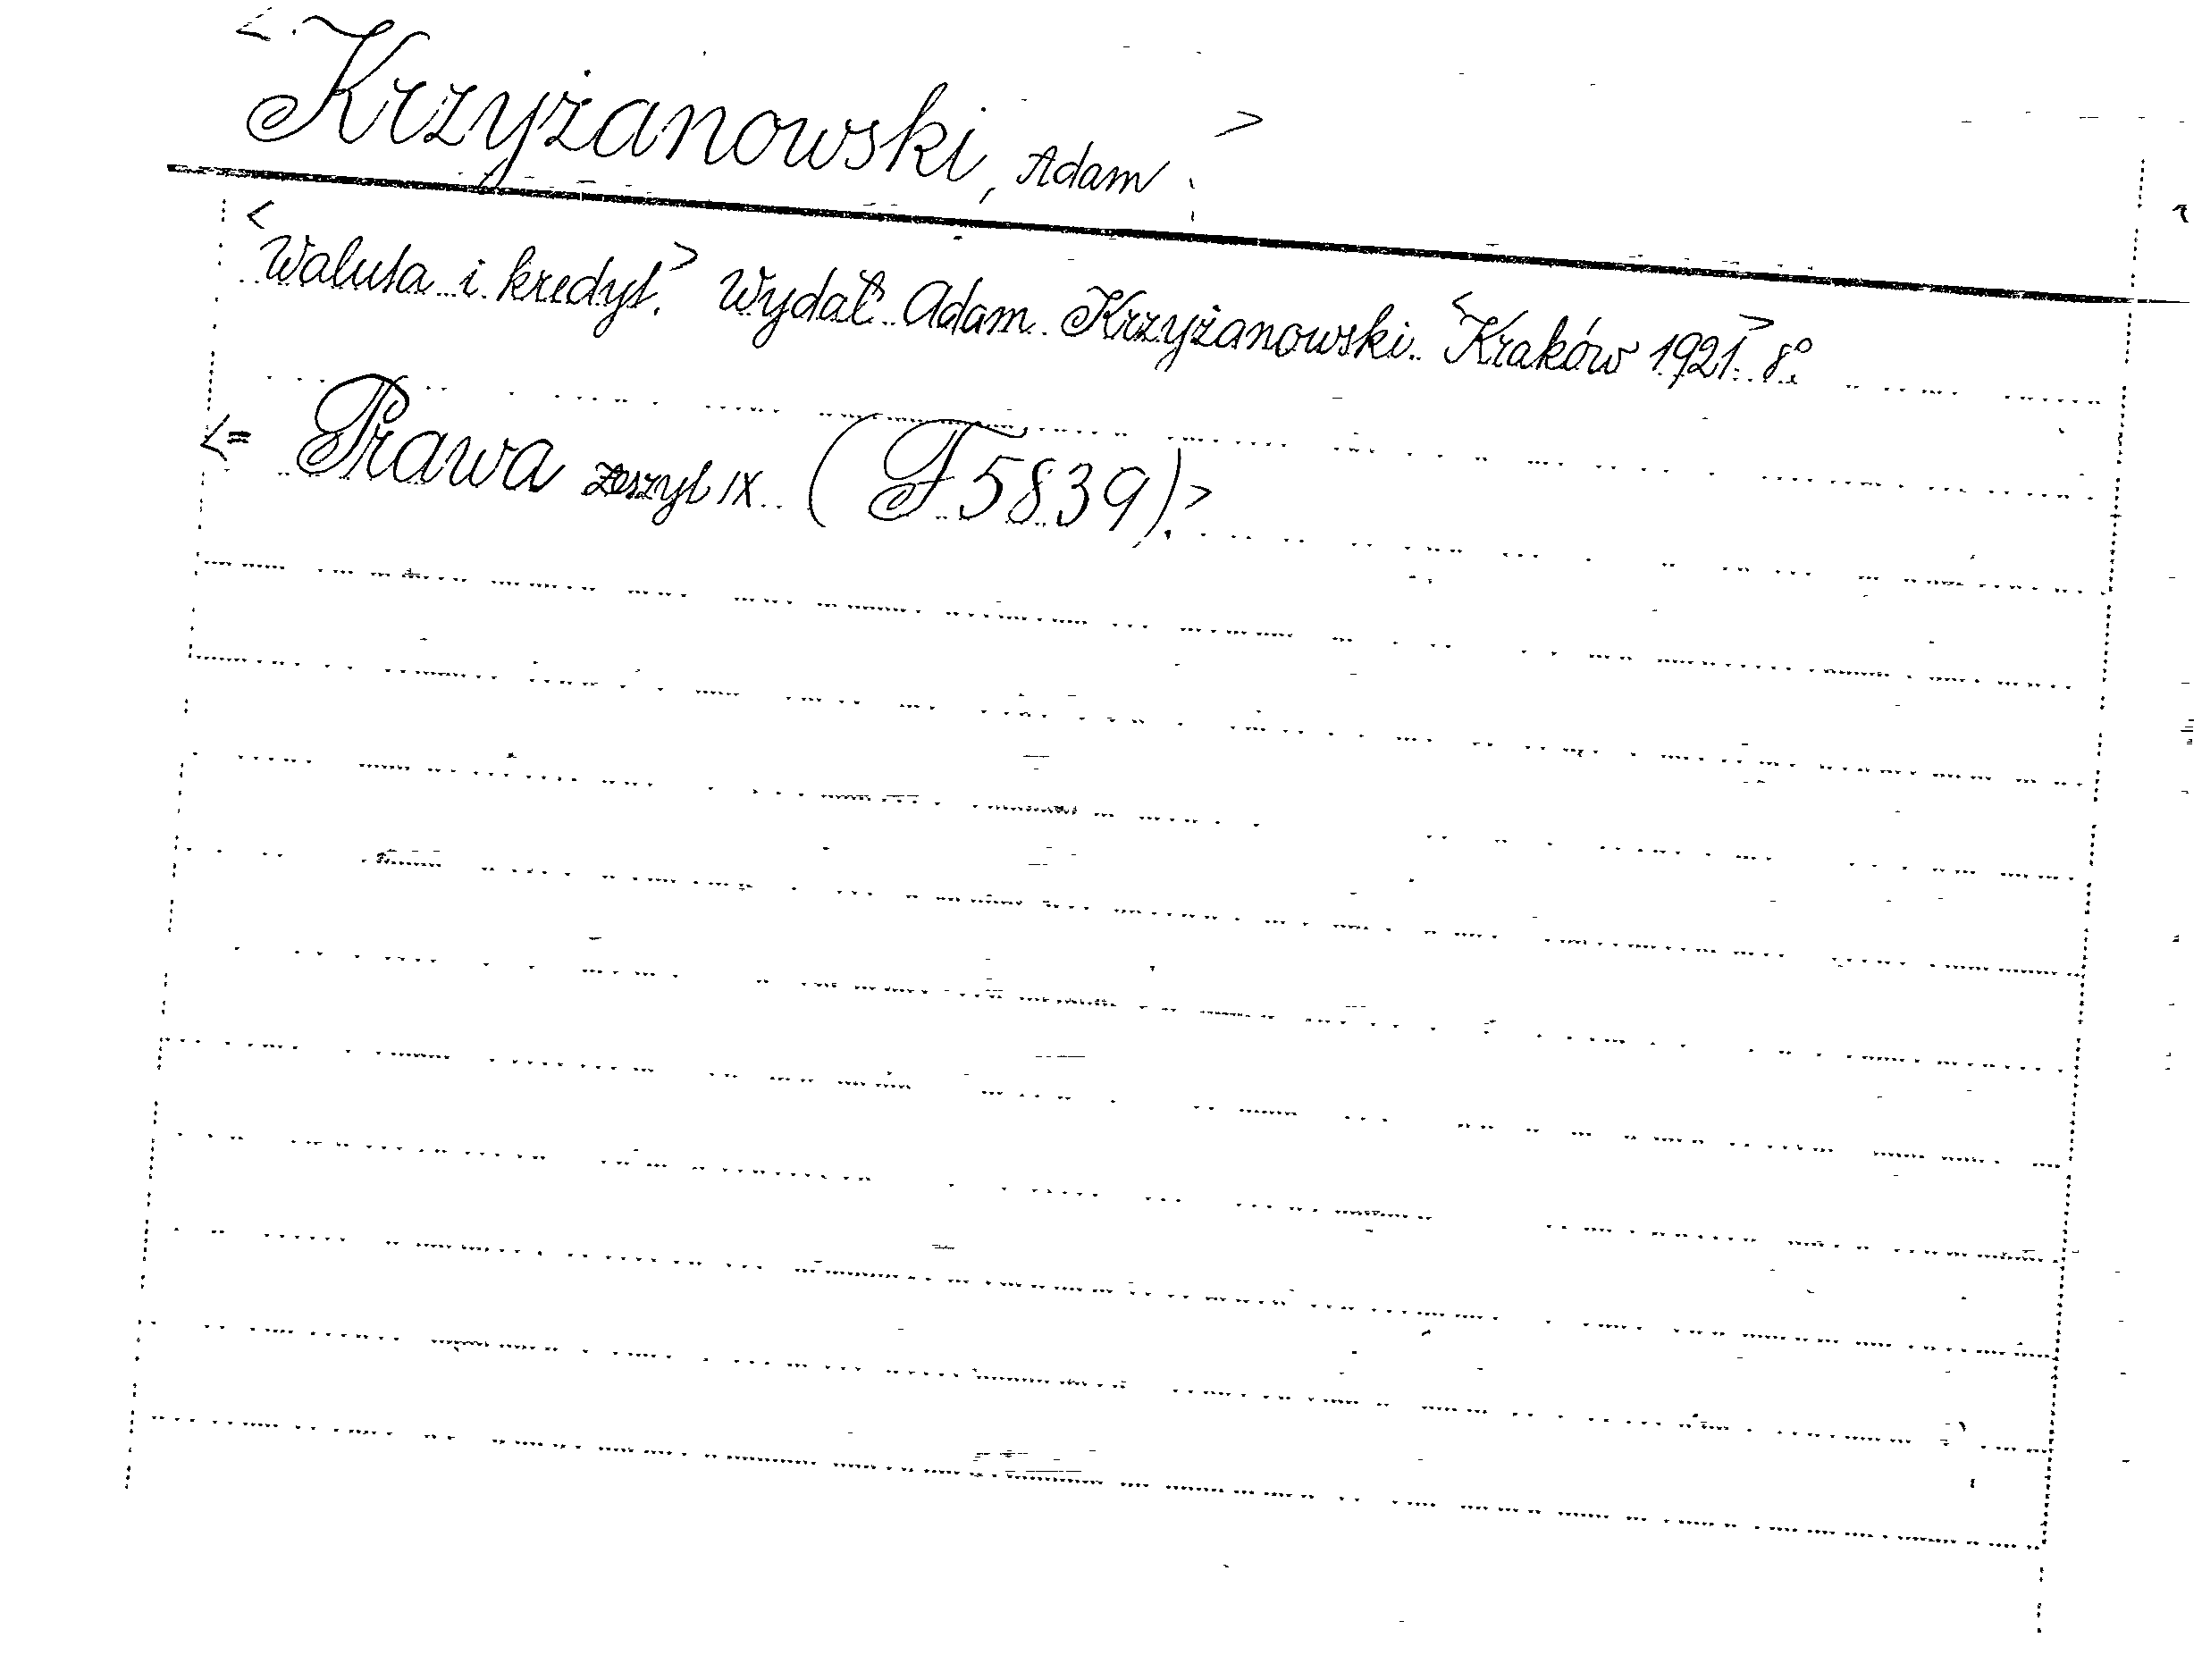 <Krzyżanowski, Adam>
<Waluta i kredyt.> Wydał Adam Krzyżanowski. <Kraków 1921.> 8°.
<= Prawa zeszyt IX. (F 5839).>